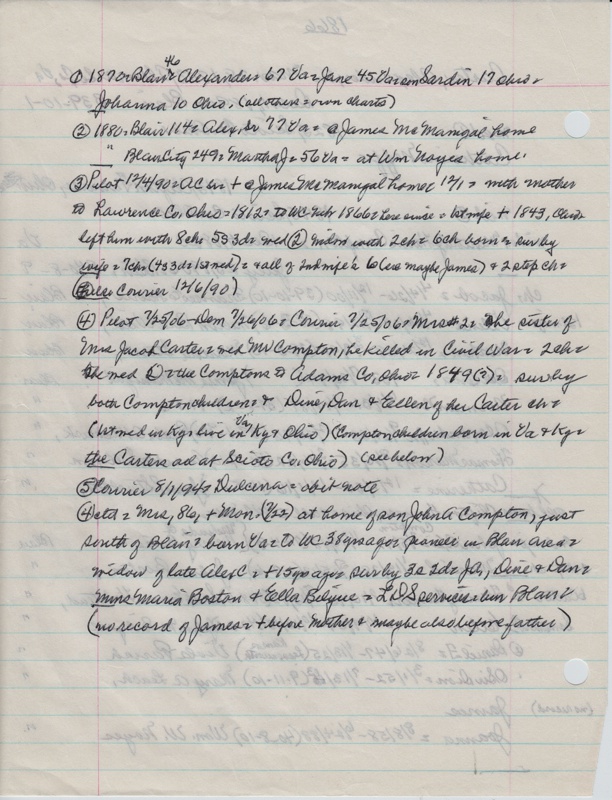 ① 1870 = Blair 46 = Alexander 67 Va = Jane 45 Va = son Sardin 17 Ohio =
Johanna 10 Ohio. (all others = own charts)
② 1880 = Blair 114 = Alex, Sr 77 Va = @ James McMamgal home
" Blair City 249 = Martha J = 56 Va = at Wm Noyes home.
③ Pilot 12/4/90 = AC Sr + @ James McMamgal home 12/1 = with mother
to Lawrence Co, Ohio = 1812 = to WC Neb 1866 = here since = 1st wife + 1843,
left him with 8 ch 5S 3d = med ② widow with 2 ch = 6 ch born = sur by
wife = 7 ch (4S 3d = 1st med) = & all of 2nd wife's 6 (ex maybe James) & 2 step ch =
(also Courier 12/6/90)
④ Pilot 7/25/06 - Dem 7/26/06 = Courier 7/25/06 = Mrs #2 = the sister of
Mrs Jacob Carter = med Mr Compton, he killed in Civil War = 2 ch =
she med ① = the Comptons to Adams Co, Ohio = 1849 (?) = sur by
both Compton children = & Dine, Dan & Ellen of her Carter ch =
(1st med in Ky = live in Va, Ky & Ohio) (Compton children born in Va & Ky =
the Carters ad at Scioto Co. Ohio) (see below)
⑤ Courier 8/1/94 = Dulcena = obit note
④ ctd = Mrs, 86, + Mon. (7/22) at home of son John A Compton, just
south of Blair = born Va = to WC 38 yrs ago = pioneer in Blair area =
widow of late Alex C = + 15 yrs ago = sur by 3s 2d = JA, Dine & Dan =
mmes Maria Boston & Ella Bilyue = LDS services = bur Blair =
(no record of James = + before mother & maybe also before father)